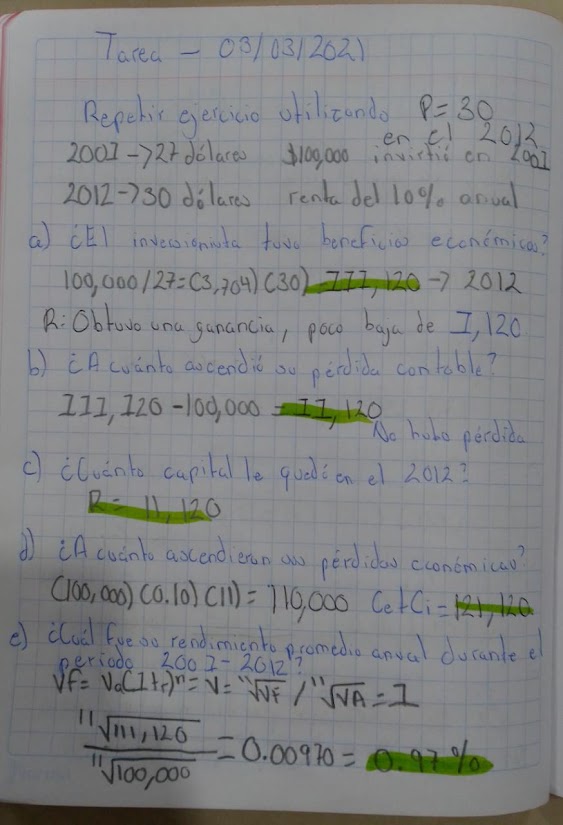 Tarea - 03/03/2021
Repetir ejercicio utilizando P=30
en el 2012
2001 -> 27 dólares $100,000 invirtió en 2001
2012 -> 30 dólares renta del 10% anual
a) ¿El inversionista tuvo beneficios económicos?
100,000/27=(3,704)(30) = 111,120 -> 2012
R: Obtuvo una ganancia, poco baja de 1,120
b) ¿A cuánto ascendió su pérdida contable?
111,120 - 100,000 = 11,120
No hubo pérdida
c) ¿Cuánto capital le quedó en el 2012?
R = 11,120
d) ¿A cuánto ascendieron sus pérdidas económicas?
(100,000)(0.10)(11) = 110,000 Ce+Ci = 121,120
e) ¿Cuál fue su rendimiento promedio anual durante el
periodo 2001-2012?
VF = Va(1+r)ⁿ = V = ¹¹√VF / ¹¹√VA = 1
¹¹√111,120
¹¹√100,000 = 0.00970 = 0.97%